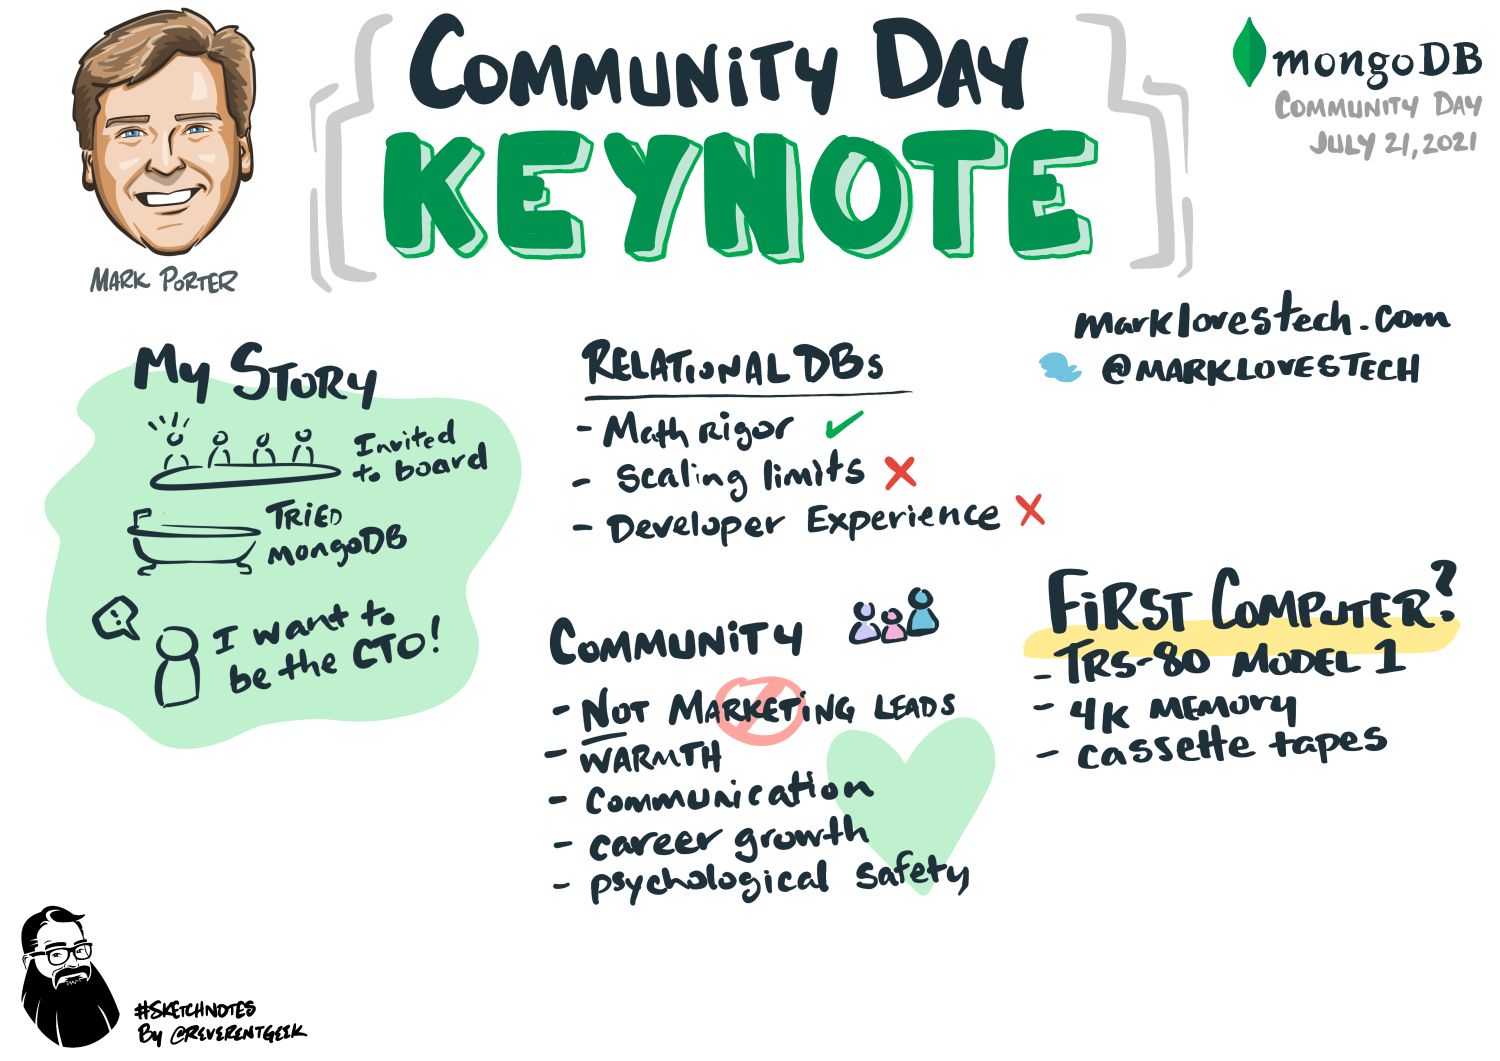 COMMUNITY DAY
KEYNOTE
MARK PORTER
mongoDB
COMMUNITY DAY
JULY 21, 2021
marklovestech.com
@MARKLOVESTECH
MY STORY
Invited
to board
TRIED
mongoDB
I want to
be the CTO!
RELATIONAL DBs
- Math rigor ✓
- Scaling limits ✗
- Developer Experience ✗
COMMUNITY
- NOT MARKETING LEADS
- WARMTH
- communication
- career growth
- psychological safety
FIRST COMPUTER?
- TRS-80 MODEL 1
- 4K MEMORY
- cassette tapes
#SKETCHNOTES
By @REVERENTGEEK